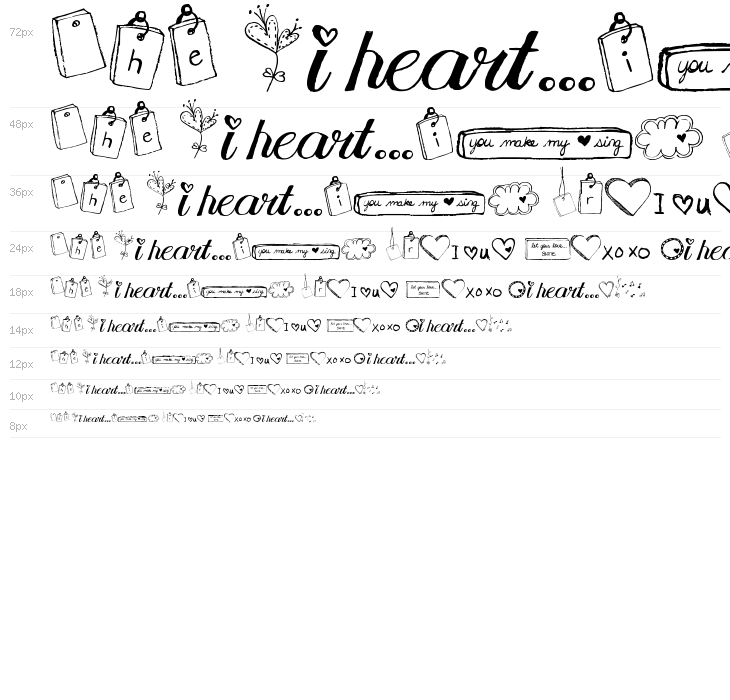 72px h e i heart... i you my
48px h e i heart... i you make my ♥ sing
36px h h e i heart... i you make my ♥ sing r I ♥ u
24px h e i heart... i you make my ♥ sing r I ♥ u let your love SHINE xoxo i hea
18px h e i heart... i you make my ♥ sing r I ♥ u xoxo i heart...
14px i heart... you make my ♥ sing r I ♥ u xoxo i heart...
12px i heart... you make my ♥ sing r I ♥ u xoxo i heart...
10px i heart... I ♥ u xoxo i heart...
8px i heart... I ♥ u xoxo i heart...